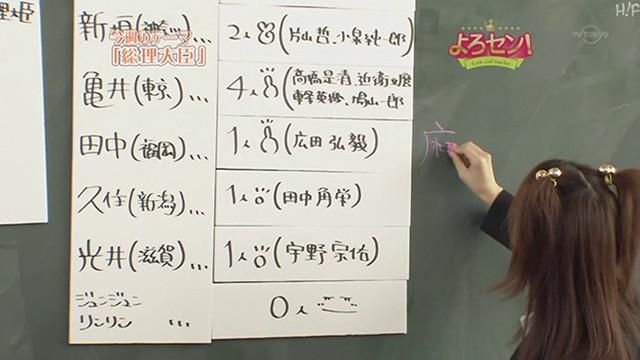 理大臣
今週のテーマ
「総理大臣」
よろセン!
TV TOKYO
H!P
2人(片山哲、小泉純一郎)
亀井(東京)… 4人(高橋是清 近衛文麿
東条英機、鳩山一郎)
田中(福岡)… 1人(広田弘毅)
久住(新潟)… 1人(田中角栄)
光井(滋賀)… 1人(宇野宗佑)
ジュンジュン
リンリン … 0人
麻